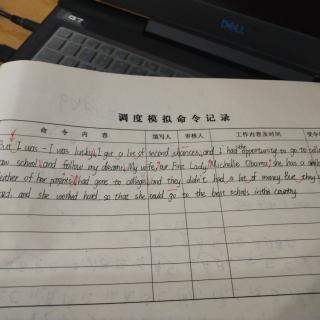 DELL
G7
调度模拟命令记录
命 令 内 容 填写人 审核人 工作内容及时间 受令
But I was - I was lucky, I got a lot of second chances, and I had the opportunity to go to coll
law school, and follow my dreams. My wife, our First Lady Michelle Obama, she has a simi
Neither of her parents had gone to college, and they didn't had a lot of money. But they w
hard, and she worked hard, so that she could go to the best schools in the country.